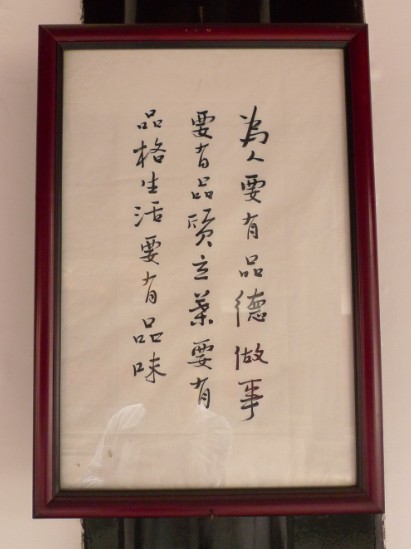 為人要有品德做事
要有品質立業要有
品格生活要有品味